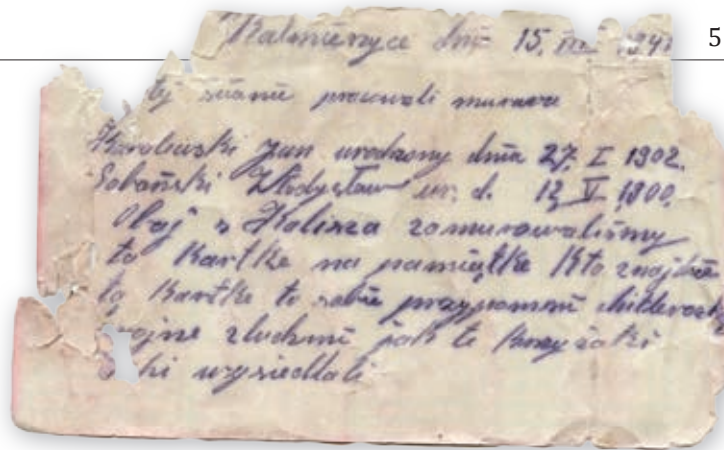 dnia 15. 194
5
tej ścianie pracowali murarze
Karolewski Jan urodzony dnia 27. I 1902.
Sobański Władysław ur. d. 12 V 1900.
Obaj z Kalisza zamurowaliśmy
tą Kartke na pamiątke Kto znajdzie
tą Kartke to sobie przypomni hitlerosk
wojne zludzmi jak te Krzyżaki
wysiedlali